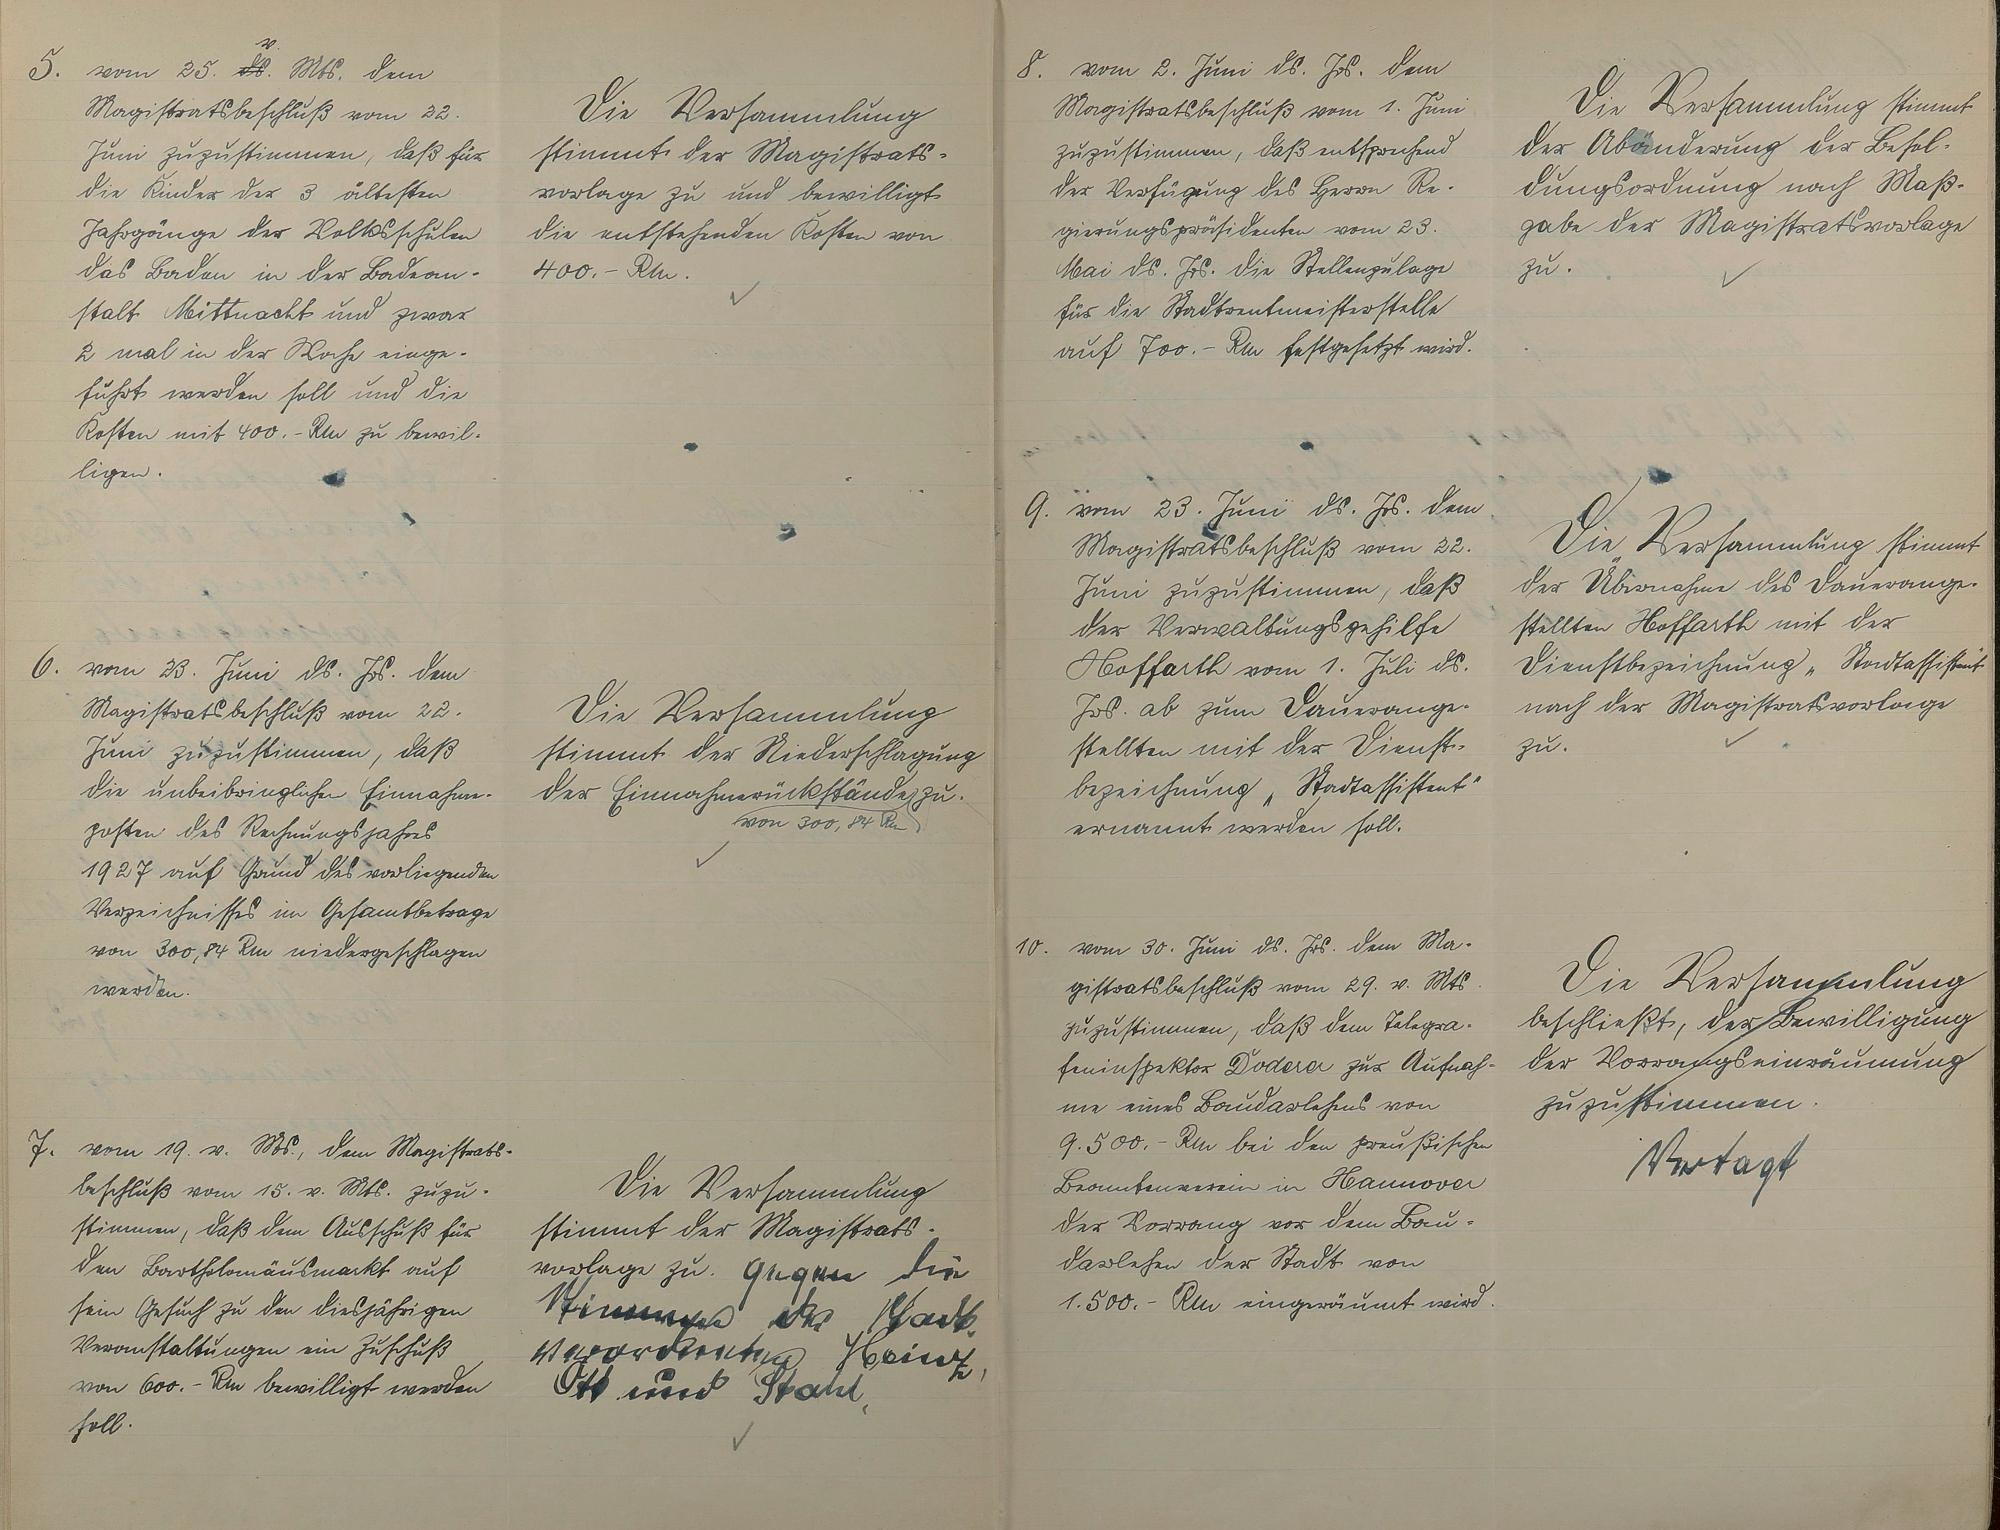 5. vom 25. ds. v. Mts. dem
Magistratsbeschluß vom 22.
Juni zuzustimmen, daß für
die Kinder der 3 ältesten
Jahrgänge der Volksschulen
das Baden in der Badean-
stalt Mittnacht und zwar
2 mal in der Woche einge-
führt werden soll und die
Kosten mit 400.- Rm zu bewil-
ligen.
Die Versammlung
stimmt der Magistrats-
vorlage zu und bewilligt
die entstehenden Kosten von
400.- Rm.
6. vom 23. Juni ds. Jrs. dem
Magistratsbeschluß vom 22.
Juni zuzustimmen, daß
die unbeibringlichen Einnahme-
posten des Rechnungsjahres
1927 auf Grund des vorliegenden
Verzeichnisses im Gesamtbetrage
von 300,84 Rm niedergeschlagen
werden.
Die Versammlung
stimmt der Niederschlagung
der Einnahmerückstände zu.
von 300,84 Rm
7. vom 19. v. Mts., dem Magistrats-
beschluß vom 15. v. Mts. zuzu-
stimmen, daß dem Ausschuß für
den Bartholomäusmarkt auf
sein Gesuch zu den diesjährigen
Veranstaltungen ein Zuschuß
von 600.- Rm bewilligt werden
soll.
Die Versammlung
stimmt der Magistrats-
vorlage zu. gegen die
Stimmen der Stadt-
verordneten Heinz,
Ott und Stahl.
8. vom 2. Juni ds. Jrs. dem
Magistratsbeschluß vom 1. Juni
zuzustimmen, daß entsprechend
der Verfügung des Herrn Re-
gierungspräsidenten vom 23.
Mai ds. Jrs. die Stellenzulage
für die Stadtrentmeisterstelle
auf 700.- Rm festgesetzt wird.
Die Versammlung stimmt
der Abänderung der Besol-
dungsordnung nach Maß-
gabe der Magistratsvorlage
zu.
9. vom 23. Juni ds. Jrs. dem
Magistratsbeschluß vom 22.
Juni zuzustimmen, daß
der Verwaltungsgehilfe
Hoffarth vom 1. Juli ds.
Jrs. ab zum Dauerange-
stellten mit der Dienst-
bezeichnung „Stadtassistent"
ernannt werden soll.
Die Versammlung stimmt
der Übernahme des Dauerange-
stellten Hoffarth mit der
Dienstbezeichnung „Stadtassistent
nach der Magistratsvorlage
zu.
10. vom 30. Juni ds. Jrs. dem Ma-
gistratsbeschluß vom 29. v. Mts.
zuzustimmen, daß dem Telegra-
feninspektor Doderer zur Aufnah-
me eines Baudarlehens von
9.500.- Rm bei den preußischen
Beamtenverein in Hannover
der Vorrang vor dem Bau-
darlehen der Stadt von
1.500.- Rm eingeräumt wird.
Die Versammlung
beschließt, der Bewilligung
der Vorrangseinräumung
zuzustimmen.
Vertagt